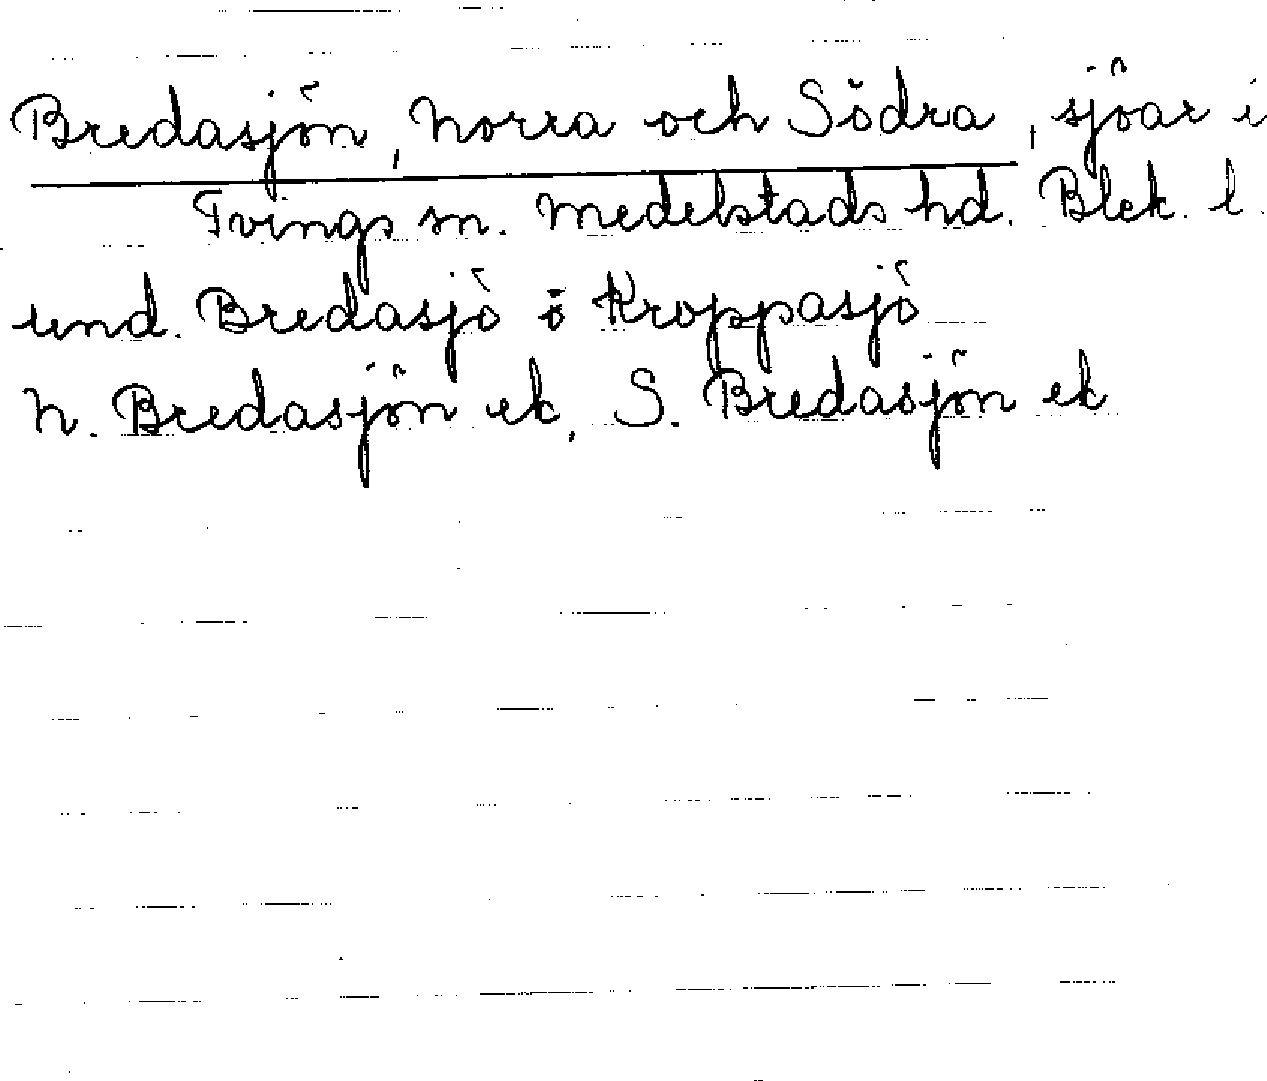 Bredasjön, Norra och Södra, sjöar i
Tvings sn. Medelstads hd. Blek. l.
und. Bredasjö o Kroppasjö
N. Bredasjön ek, S. Bredasjön ek